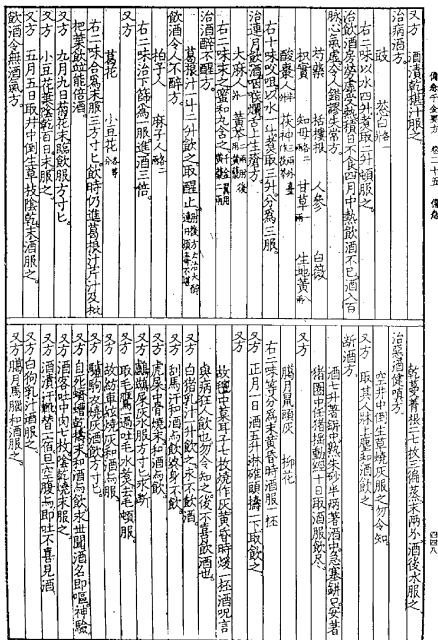 備急千金要方 卷二十五 備急
又方 酒漬乾椹汁服之
治病酒方
豉 葱白各一升
右二味以水四升煮取二升頓服之
治飲酒房勞虛受熱積日不食四月中熱飲酒不已酒入百
脉心氣虛令人錯謬失常方
芍藥 栝樓根 人參 白薇
枳實 知母各二兩 甘草一兩 生地黃
酸棗人半升 茯神三兩
右十味㕮咀以水一斗煮取三升分爲三服
治連月飲酒咽喉爛舌上生瘡方
大麻人一升 黃芩二兩
右二味末之蜜和丸含之
治酒醉不醒方
葛根汁一斗二升飲之取醒止
飲酒令人不醉方
柏子人 麻子人各二
右二味治下篩爲一服進酒三倍
又方
葛花 小豆花各等分
右二味合爲末服三方寸匕飲時仍進葛根汁芹汁及枇
杷葉飲並能倍酒
又方 九月九日菊花末臨飲服方寸匕
又方 小豆花葉陰乾百日末服之
又方 五月五日取井中倒生草枝陰乾末酒服之
飲酒令無酒氣方
乾蔓菁根二七枚三徧蒸末兩分酒後水服之
治惡酒健嗔方
空井中倒生草燒灰服之勿令知
又方 取其人牀上塵和酒飲之
斷酒方
酒七升著餅中熟朱砂半兩著酒中急塞餅口安著
猪圈中任猪搖動經十日取酒服飲尽
又方
臘月鼠頭灰 柳花
右二味等分爲末黃昏時酒服一杯
又方 正月一日酒五升淋碓頭擣一下取飲之
又方
故氊中蒼耳子七枚燒作灰黃昏時煖一杯酒呪言
與病狂人飲也勿令知之後不喜飲酒也
又方 白猪乳汁一升飲之永不飲酒
又方 刮馬汗和酒與飲終身不飲
又方 虎屎中骨燒末和酒與飲
又方 鸕鷀屎灰水服方寸匕永斷
又方 取毛鷹一過吐毛水煮去毛頓服
又方 故紡車弦燒灰和酒與服
又方 驢駒衣燒灰酒服方寸匕
又方 自死蠐螬乾擣末和酒與飲永世聞酒名即嘔神驗
又方 酒客吐中肉七枚陰乾燒末服之
又方 酒漬汗靴替一宿旦空腹與即吐不喜見酒
又方 白狗乳汁酒服之
又方 臘月馬腦和酒服之
四四八